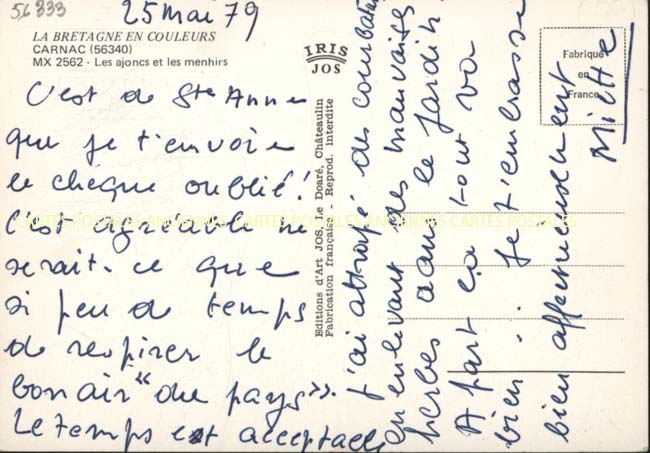 56333
25 mai 79
LA BRETAGNE EN COULEURS
CARNAC (56340)
MX 2562 - Les ajoncs et les menhirs
C'est de Ste Anne
que je t'envoie
le chèque oublié!
c'est agréable ne
serait-ce que
si peu de temps
de respirer le
bon air "du pays".
Le temps est acceptable
IRIS
JOS
Editions d'Art JOS, Le Doaré, Châteaulin
Fabrication française - Reprod. interdite
J'ai attrapé des courbatures
en enlevant les mauvaises
herbes dans le jardin.
A part ça tout va
bien. Je t'embrasse
bien affectueusement
Fabriqué
en
France
CARTES POSTALES ANCIENNES CARTES POSTALES ANCIENNES CARTES POSTALES